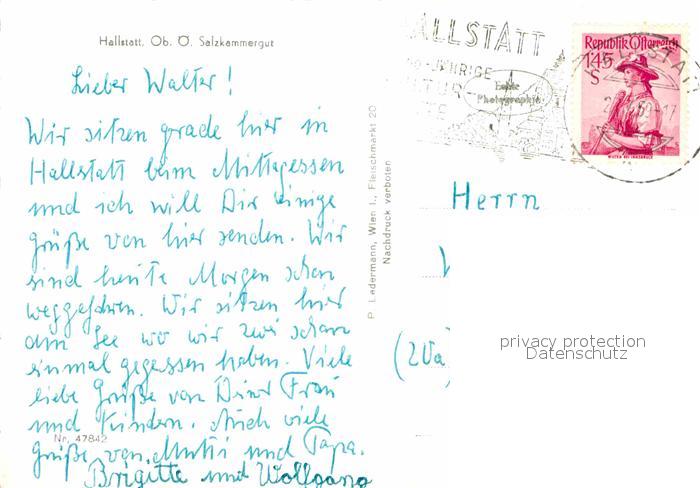 Hallstatt, Ob. Ö. Salzkammergut
Lieber Walter!
Wir sitzen grade hier in
Hallstatt beim Mittagessen
und ich will Dir einige
Grüße von hier senden. Wir
sind heute Morgen schon
weggefahren. Wir sitzen hier
am See wo wir zwei schon
einmal gegessen haben. Viele
liebe Grüße von Deiner Frau
und Kindern. Auch viele
Grüße von Mutti und Papa.
Brigitte und Wolfgang
Nr. 47842
P. Ledermann, Wien I., Fleischmarkt 20
Nachdruck verboten
HALLSTATT
JÄHRIGE
Echte
Photographie
Republik Österreich
1.45
S
Herrn
privacy protection
Datenschutz